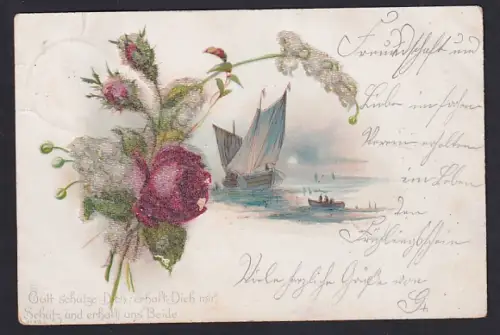 Freundschaft und
Liebe
erhalten
im Leben
den
Frühlingsschein
Viele herzliche Grüße von
G.
Gott schütze Dich, erhalt Dich mir
Schütz und erhalt uns Beide